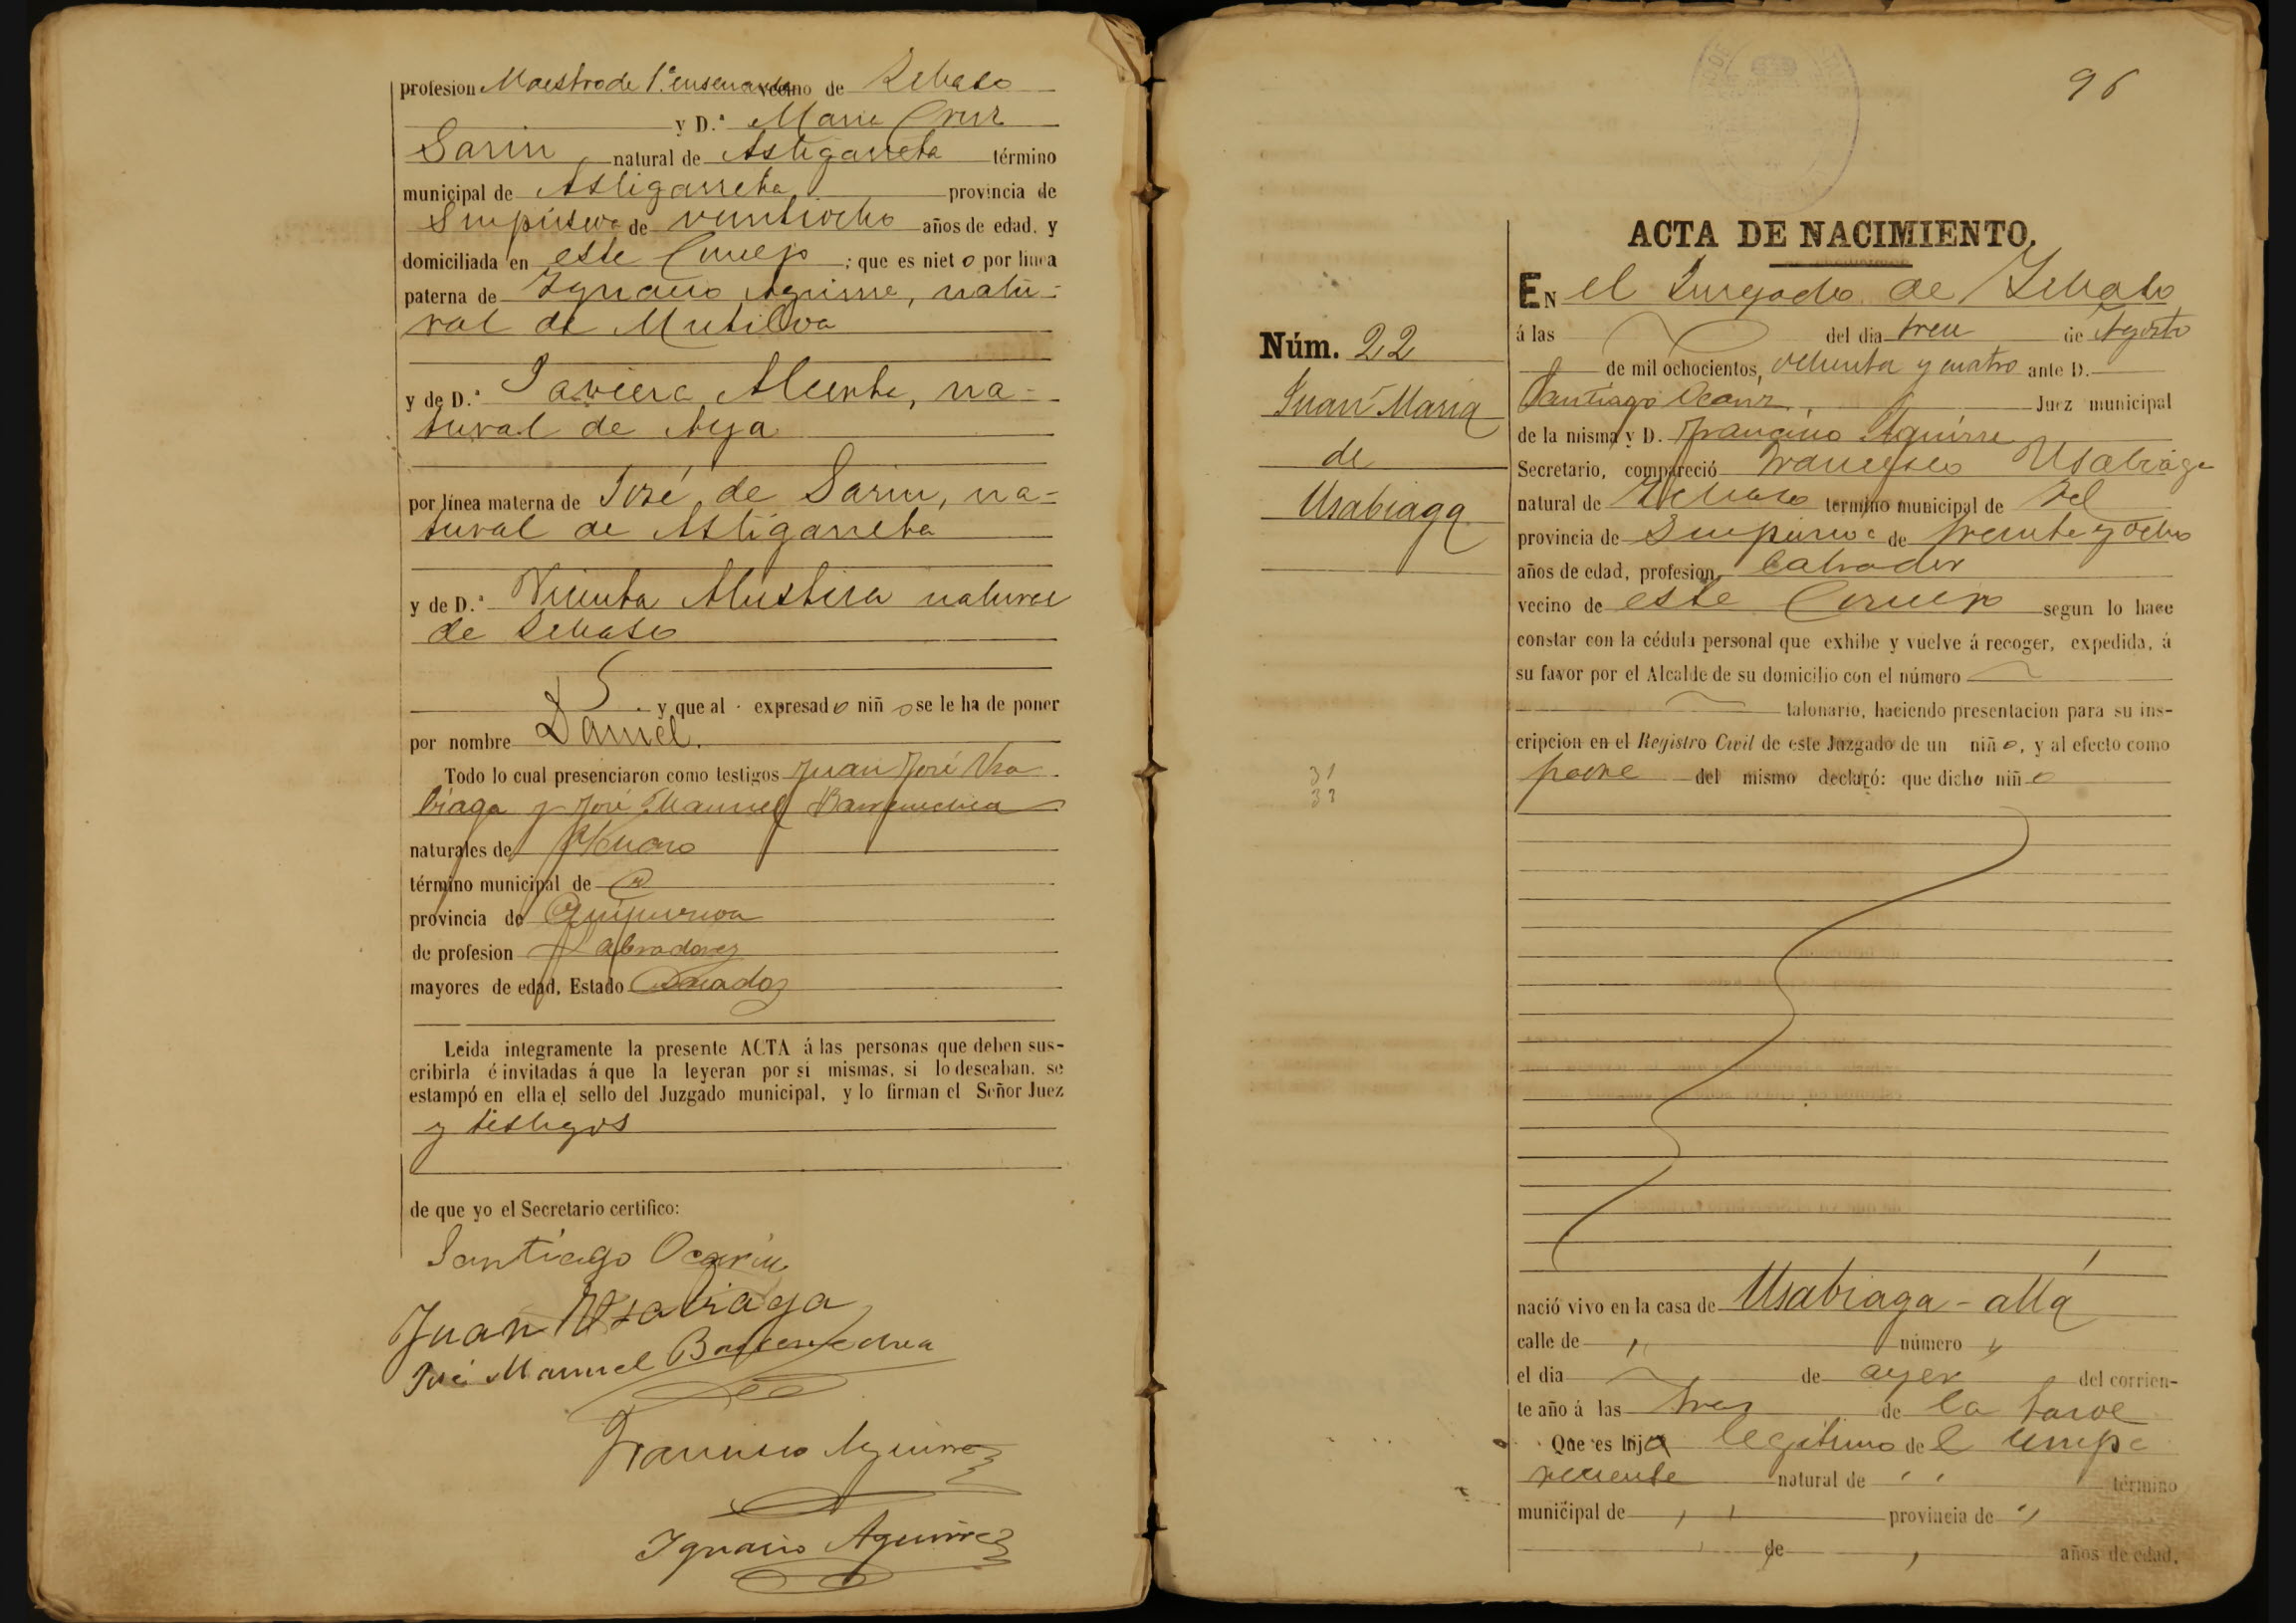 profesion Maestro de 1.ª enseñanza vecino de
y D.ª Maria Cruz
Sarin natural de Astigarreta término
municipal de Astigarreta provincia de
Guipúzcoa de veintiocho años de edad, y
domiciliada en este Concejo ; que es niet o por línea
paterna de Ygnacio Aguirre, natu-
ral de Mutiloa
y de D.ª Javiera Alcorta, na-
tural de Aya
por línea materna de José de Sarin, na-
tural de Astigarreta
y de D.ª Vicenta natural
de
y que al expresad o niñ o se le ha de poner
por nombre Daniel.
Todo lo cual presenciaron como testigos Juan José Usa
biaga y José Manuel Barrenechea
naturales de
término municipal de
provincia de Guipuzcoa
de profesion Labradores
mayores de edad, Estado Casados
Leida integramente la presente ACTA á las personas que deben sus-
cribirla é invitadas á que la leyeran por si mismas, si lo deseaban, se
estampó en ella el sello del Juzgado municipal, y lo firman el Señor Juez
y testigos
de que yo el Secretario certifico:
Santiago Ocariz
Juan Usabiaga
José Manuel Barrenechea
Francisco Aguirre
Ygnacio Aguirre
96
ACTA DE NACIMIENTO.
EN el Juzgado de
á las del dia trece de Agosto
de mil ochocientos, ochenta y cuatro ante D.
Santiago Ocariz, Juez municipal
de la misma y D. Francisco Aguirre
Secretario, compareció Francisco Usabiaga
natural de término municipal de id
provincia de Guipuzcoa de treinta y ocho
años de edad, profesion labrador
vecino de este Concejo segun lo hace
constar con la cédula personal que exhibe y vuelve á recoger, expedida, á
su favor por el Alcalde de su domicilio con el número
talonario, haciendo presentacion para su ins-
cripcion en el Registro Civil de este Juzgado de un niñ o, y al efecto como
padre del mismo declaró: que dicho niñ o
Núm. 22
Juan Maria
de
Usabiaga
31
33
nació vivo en la casa de Usabiaga-alla
calle de " número "
el dia de ayer del corrien-
te año á las tres de la tarde
Que es hijo legítimo de l compa
reciente natural de " término
municipal de " provincia de "
de " años de edad,